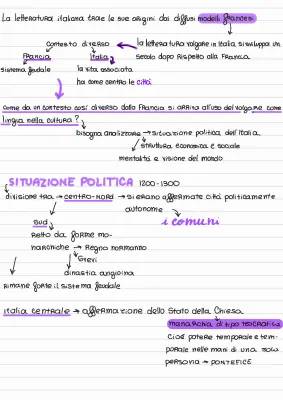 La letteratura italiana trae le sue origini dai diffusi modelli francesi
contesto diverso ← la letteratura volgare in Italia si sviluppa un
Francia Italia secolo dopo rispetto alla Francia
sistema feudale la vita associata
ha come centro le città
come da un contesto così diverso dalla Francia si arriva all'uso del volgare come
lingua nella cultura?
bisogna analizzare → situazione politica dell'Italia
struttura economica e sociale
mentalità e visione del mondo
SITUAZIONE POLITICA 1200-1300
divisione tra → centro-nord → si erano affermate città politicamente
autonome
sud i comuni
Retto da forme mo-
narchiche → Regno normanno
Svevi
dinastia angioina
rimane forte il sistema feudale
Italia centrale → affermazione dello Stato della Chiesa
monarchia di tipo teocratico
cioè potere temporale e tem-
porale nelle mani di una sola
persona → PONTEFICE